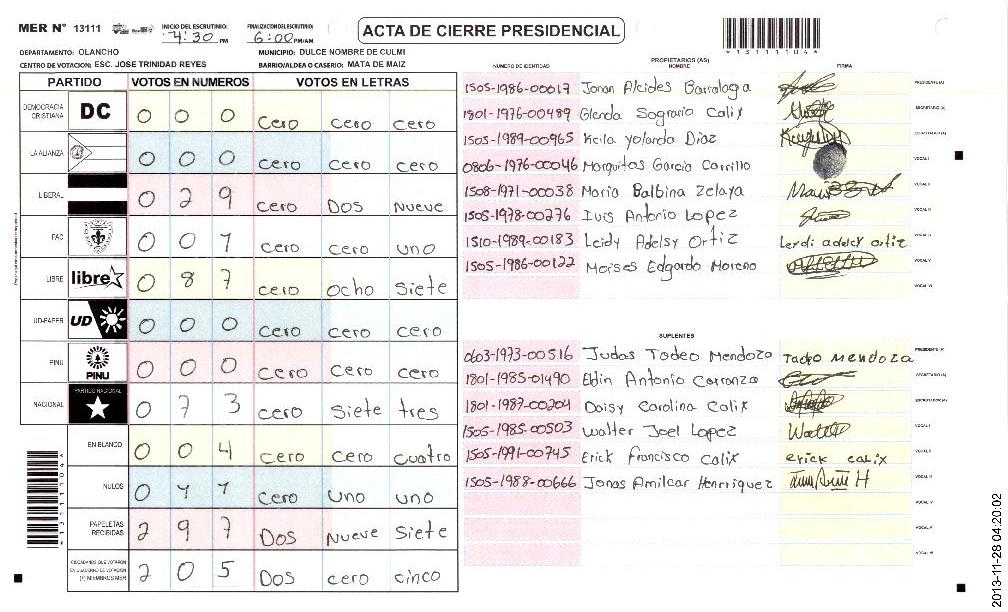 MER N° 13111
INICIO DEL ESCRUTINIO: 4:30 PM
FINALIZACION DEL ESCRUTINIO: 6:00 PM/AM
ACTA DE CIERRE PRESIDENCIAL
*1311104*
DEPARTAMENTO: OLANCHO
MUNICIPIO: DULCE NOMBRE DE CULMI
CENTRO DE VOTACION: ESC. JOSE TRINIDAD REYES
BARRIO/ALDEA O CASERIO: MATA DE MAIZ
PARTIDO VOTOS EN NUMEROS VOTOS EN LETRAS
DEMOCRACIA CRISTIANA DC 0 0 0 cero cero cero
LA ALIANZA 0 0 0 cero cero cero
LIBERAL 0 2 9 cero Dos Nueve
FAC 0 0 1 cero cero uno
LIBRE libre 0 8 7 cero ocho siete
UD-FAPER UD 0 0 0 cero cero cero
PINU PINU 0 0 0 cero cero cero
NACIONAL PARTIDO NACIONAL 0 7 3 cero siete tres
EN BLANCO 0 0 4 cero cero cuatro
NULOS 0 1 1 cero uno uno
PAPELETAS RECIBIDAS 2 9 7 Dos Nueve siete
CIUDADANOS QUE VOTARON EN CUADERNO DE VOTACION (+) MIEMBROS MER 2 0 5 Dos cero cinco
*1311104*
PROPIETARIOS (AS)
NUMERO DE IDENTIDAD NOMBRE FIRMA
1505-1986-00017 Jonan Alcides Barralaga PRESIDENTE (A)
1801-1976-00489 Glenda Sogrario Calix SECRETARIO (A)
1505-1989-00965 Keila Yolanda Diaz ESCRUTADOR (A)
0806-1976-00046 Marquitos Garcia Carrillo VOCAL I
1508-1971-00038 Maria Balbina Zelaya VOCAL II
1505-1978-00276 Luis Antonio Lopez VOCAL III
1510-1989-00183 Leidy Adelsy Ortiz Leydi adelcy ortiz VOCAL IV
1505-1986-00122 Moises Edgardo Moreno VOCAL V
VOCAL VI
SUPLENTES
0603-1973-00516 Judas Tadeo Mendoza Tadeo Mendoza PRESIDENTE (A)
1801-1985-01490 Eldin Antonio Carranza SECRETARIO (A)
1801-1987-00204 Daisy Carolina Calix ESCRUTADOR (A)
1505-1985-00503 Walter Joel Lopez VOCAL I
1505-1991-00745 Erick Francisco Calix erick calix VOCAL II
1505-1988-00666 Jonas Amilcar Henrriquez VOCAL III
VOCAL IV
VOCAL V
VOCAL VI
2013-11-28 04:20:02